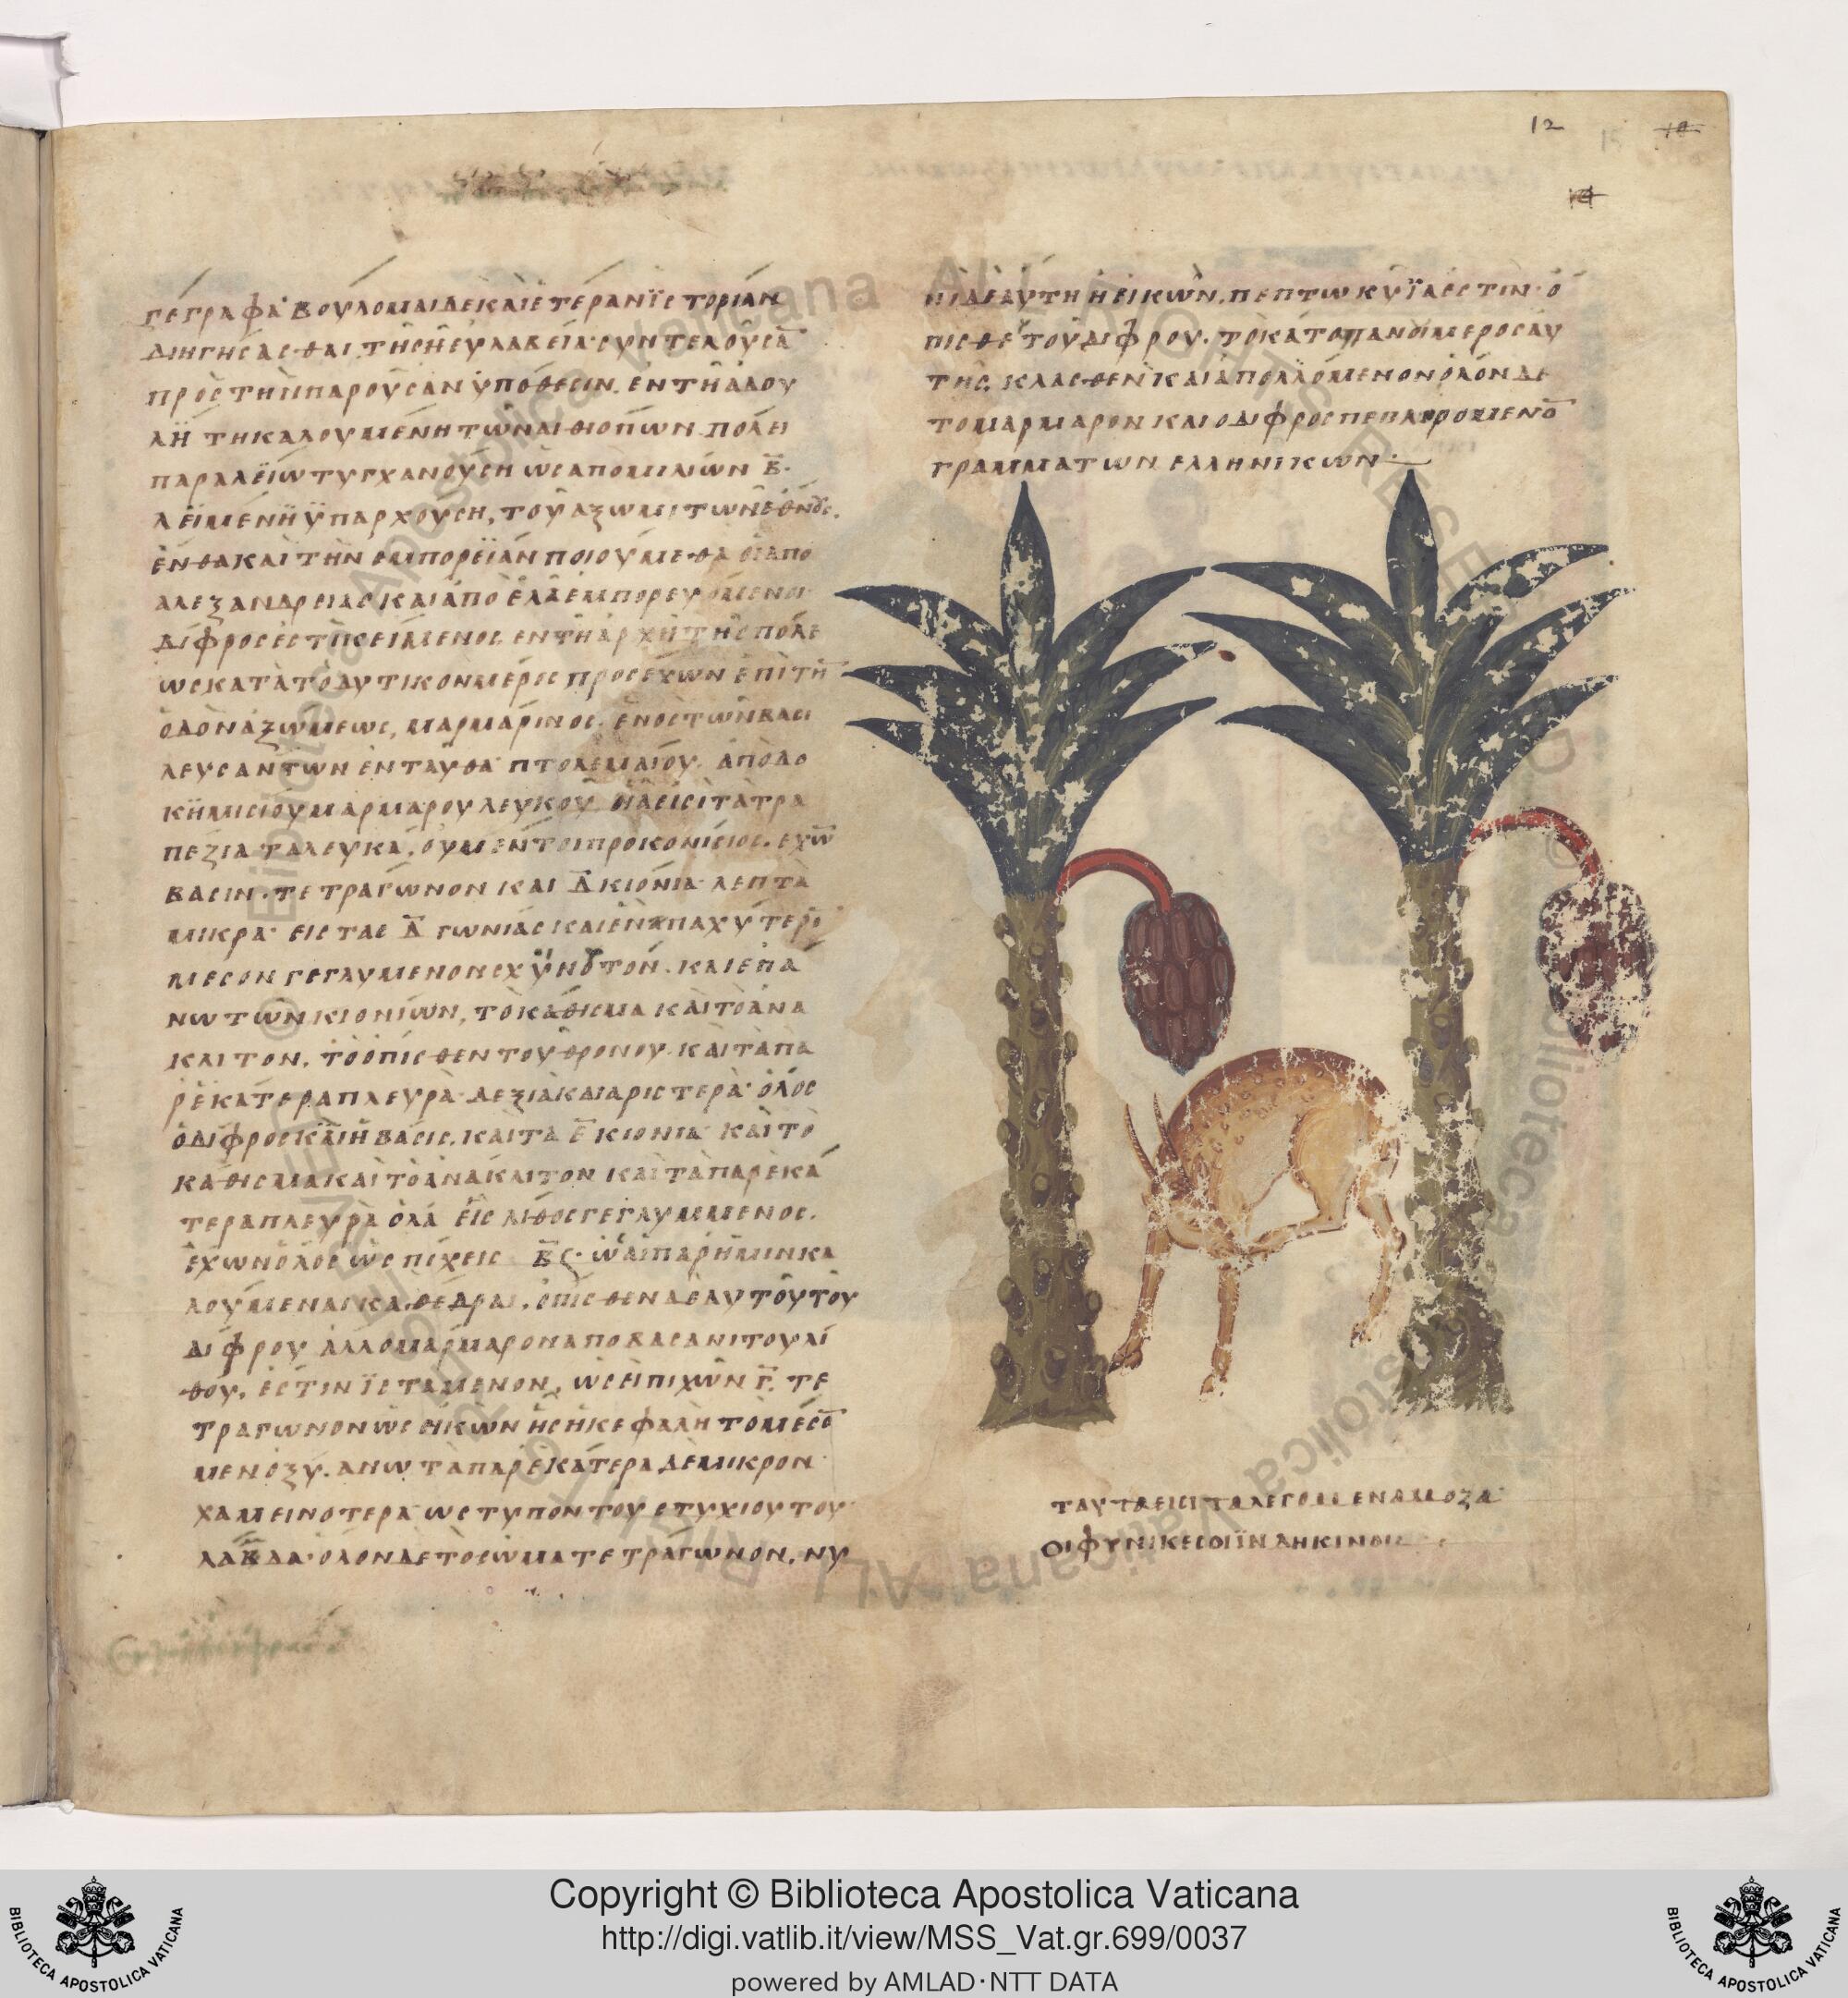 12
ΓΕΓΡΑΦΑ ΒΟΥΛΟΜΑΙ ΔΕ ΚΑΙ ΕΤΕΡΑΝ ΪϹΤΟΡΙΑΝ
ΔΙΗΓΗϹΑϹΘΑΙ ΤΗ ϹΗ ΕΥΛΑΒΕΙΑ ϹΥΝΤΕΛΟΥϹΑ̅
ΠΡΟϹ ΤΗΝ ΠΑΡΟΥϹΑΝ ΥΠΟΘΕϹΙΝ. ΕΝ ΤΗ ΑΔΟΥ
ΛΗ ΤΗ ΚΑΛΟΥΜΕΝΗ ΤΩΝ ΑΙΘΙΟΠΩΝ ΠΟΛΕΙ
ΠΑΡΑΛΕΪΩ ΤΥΓΧΑΝΟΥϹΗ ΩϹ ΑΠΟ ΜΙΛΙΩΝ Β̅.
ΛΕΙΜΕΝΗ ΫΠΑΡΧΟΥϹΗ, ΤΟΥ ΑΞΩΜΙΤΩΝ ΕΘΝΟΥϹ.
ΕΝΘΑ ΚΑΙ ΤΗΝ ΕΜΠΟΡΕΪΑΝ ΠΟΙΟΥΜΕΘΑ ΟΙ ΑΠΟ
ΑΛΕΞΑΝΔΡΕΙΑϹ ΚΑΙ ΑΠΟ ΕΛΑ ΕΜΠΟΡΕΥΟΜΕΝΟΙ
ΔΙΦΡΟϹ ΕϹΤΙ ΚΕΙΜΕΝΟϹ ΕΝ ΤΗ ΑΡΧΗ ΤΗϹ ΠΟΛΕ
ΩϹ ΚΑΤΑ ΤΟ ΔΥΤΙΚΟΝ ΜΕΡΟϹ ΠΡΟϹΕΧΩΝ ΕΠΙ ΤΗ̅
ΟΔΟΝ ΑΞΩΜΕΩϹ, ΜΑΡΜΑΡΙΝΟϹ. ΕΝΟϹ ΤΩΝ ΒΑϹΙ
ΛΕΥϹΑΝΤΩΝ ΕΝΤΑΥΘΑ ΠΤΟΛΕΜΑΙΟΥ. ΑΠΟ ΔΟ
ΚΗΜΙϹΙΟΥ ΜΑΡΜΑΡΟΥ ΛΕΥΚΟΥ. ΟΙΑ ΕΙϹΙ ΤΑ ΤΡΑ
ΠΕΖΙΑ ΤΑ ΛΕΥΚΑ, ΟΥ ΜΕΝΤΟΙ ΠΡΟΙΚΟΝΙϹΙΟϹ. ΕΧΩ̅
ΒΑϹΙΝ. ΤΕΤΡΑΓΩΝΟΝ ΚΑΙ Δ̅ ΚΙΟΝΙΑ ΛΕΠΤΑ
ΜΙΚΡΑ ΕΙϹ ΤΑϹ Δ̅ ΓΩΝΙΑϹ ΚΑΙ ΕΝΑ ΠΑΧΥΤΕΡΟ
ΜΕϹΟΝ ΓΕΓΛΥΜΕΝΟΝ ϹΧΥΝΟΤΟΝ. ΚΑΙ ΕΠΑ
ΝΩ ΤΩΝ ΚΙΟΝΙΩΝ, ΤΟ ΚΑΘΙϹΜΑ ΚΑΙ ΤΟ ΑΝΑ
ΚΛΙΤΟΝ, ΤΟ ΟΠΙϹΘΕΝ ΤΟΥ ΘΡΟΝΟΥ ΚΑΙ ΤΑ ΠΑ
ΡΕΚΑΤΕΡΑ ΠΛΕΥΡΑ ΔΕΞΙΑ ΚΑΙ ΑΡΙϹΤΕΡΑ ΟΛΟϹ
Ο ΔΙΦΡΟϹ ΚΑΙ Η ΒΑϹΙϹ. ΚΑΙ ΤΑ Ε̅ ΚΙΟΝΙΑ ΚΑΙ ΤΟ
ΚΑΘΙϹΜΑ ΚΑΙ ΤΟ ΑΝΑΚΛΙΤΟΝ ΚΑΙ ΤΑ ΠΑΡΕΚΑ
ΤΕΡΑ ΠΛΕΥΡΑ ΟΛΑ ΕΙϹ ΛΙΘΟϹ ΓΕΓΛΥΜΜΕΝΟϹ.
ΕΧΩΝ ΟΛΟϹ ΩϹ ΠΙΧΕΙϹ Β̅ Ϛ· ΩϹ ΑΙ ΠΑΡ ΗΜΙΝ ΚΑ
ΛΟΥΜΕΝΑΙ ΚΑΘΕΔΡΑΙ. ΟΠΙϹΘΕΝ ΔΕ ΑΥΤΟΥ ΤΟΥ
ΔΙΦΡΟΥ ΑΛΛΟ ΜΑΡΜΑΡΟΝ ΑΠΟ ΒΑϹΑΝΙΤΟΥ ΛΙ
ΘΟΥ, ΕϹΤΙΝ ΪϹΤΑΜΕΝΟΝ, ΩϹΕΙ ΠΙΧΩΝ Γ̅. ΤΕ
ΤΡΑΓΩΝΟΝ ΩϹ ΗΚΩΝ ΗϹ Η ΚΕΦΑΛΗ ΤΟ ΜΕϹΟ̅
ΜΕΝ ΟΞΥ. ΑΝΩ ΤΑ ΠΑΡΕΚΑΤΕΡΑ ΔΕ ΜΙΚΡΟΝ
ΧΑΜΕΙΝΟΤΕΡΑ ΩϹ ΤΥΠΟΝ ΤΟΥ ϹΤΥΧΙΟΥ ΤΟΥ
ΛΑΒΔΑ· ΟΛΟΝ ΔΕ ΤΟ ϹΩΜΑ ΤΕΤΡΑΓΩΝΟΝ. ΝΥ
ΝΙ ΔΕ ΑΥΤΗ Η ΕΙΚΩΝ. ΠΕΠΤΩΚΥΪΑ ΕϹΤΙΝ· Ο
ΠΙϹΘΕ ΤΟΥ ΔΙΦΡΟΥ. ΤΟ ΚΑΤΟΠΑΝΟΙ ΜΕΡΟϹ ΑΥ
ΤΗϹ. ΚΛΑϹΘΕΝ ΚΑΙ ΑΠΟΛΛΟΜΕΝΟΝ ΟΛΟΝ ΔΕ
ΤΟ ΜΑΡΜΑΡΟΝ ΚΑΙ Ο ΔΙΦΡΟϹ ΠΕΠΛΗΡΟΜΕΝΟ̅
ΓΡΑΜΜΑΤΩΝ ΕΛΛΗΝΙΚΩΝ·
ΤΑΥΤΑ ΕΙϹΙ ΤΑ ΛΕΓΟΜΕΝΑ ΜΟΖΑ
ΟΙ ΦΥΝΙΚΕϹ ΟΙ ΪΝΔΗΚΙΝΟΙ
Copyright © Biblioteca Apostolica Vaticana
http://digi.vatlib.it/view/MSS_Vat.gr.699/0037
powered by AMLAD·NTT DATA
BIBLIOTECA APOSTOLICA VATICANA
BIBLIOTECA APOSTOLICA VATICANA